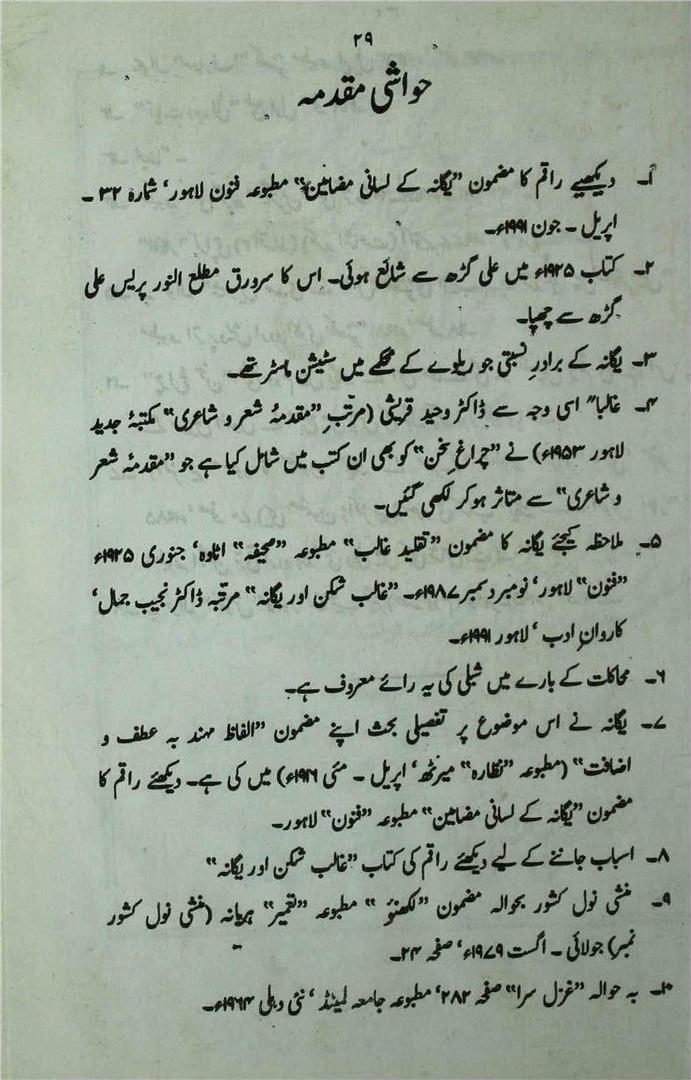 ۲۹
حواشی مقدمہ
۱۔ دیکھیے راقم کا مضمون ”یگانہ کے لسانی مضامین“ مطبوعہ فنون لاہور‘ شمارہ ۳۲ ۔
اپریل ۔ جون ۱۹۹۱ء۔
۲۔ کتاب ۱۹۲۵ء میں علی گڑھ سے شائع ہوئی۔ اس کا سرورق مطلع النور پریس علی
گڑھ سے چھپا۔
۳۔ یگانہ کے برادرِ نسبتی جو ریلوے کے محکمے میں سٹیشن ماسٹر تھے۔
۴۔ غالباً اسی وجہ سے ڈاکٹر وحید قریشی (مرتّبِ ”مقدمۂ شعر و شاعری“ مکتبۂ جدید
لاہور ۱۹۵۳ء) نے ”چراغِ سخن“ کو بھی ان کتب میں شامل کیا ہے جو ”مقدمۂ شعر
و شاعری“ سے متاثر ہو کر لکھی گئیں۔
۵۔ ملاحظہ کیجئے یگانہ کا مضمون ”تقلیدِ غالب“ مطبوعہ ”صحیفہ“ اٹاوہ‘ جنوری ۱۹۲۵ء
”فنون“ لاہور‘ نومبر دسمبر ۱۹۸۷ء۔ ”غالب شکن اور یگانہ“ مرتّبہ ڈاکٹر نجیب جمال‘
کاروانِ ادب ‘ لاہور ۱۹۹۱ء۔
۶۔ محاکات کے بارے میں شبلی کی یہ رائے معروف ہے۔
۷۔ یگانہ نے اس موضوع پر تفصیلی بحث اپنے مضمون ”الفاظ مہند بہ عطف و
اضافت“ (مطبوعہ ”نظارہ“ میرٹھ‘ اپریل ۔ مئی ۱۹۱۶ء) میں کی ہے۔ دیکھئے راقم کا
مضمون ”یگانہ کے لسانی مضامین“ مطبوعہ ”فنون“ لاہور۔
۸۔ اسباب جاننے کے لیے دیکھئے راقم کی کتاب ”غالب شکن اور یگانہ“
۹۔ منشی نول کشور بحوالہ مضمون ”لکھنؤ“ مطبوعہ ”تعمیر“ ہریانہ (منشی نول کشور
نمبر) جولائی ۔ اگست ۱۹۷۹ء‘ صفحہ ۲۴۔
۱۰۔ بہ حوالہ ”غزل سرا“ صفحہ ۲۸۲‘ مطبوعہ جامعہ لمیٹڈ ‘ نئی دہلی ۱۹۶۴ء۔